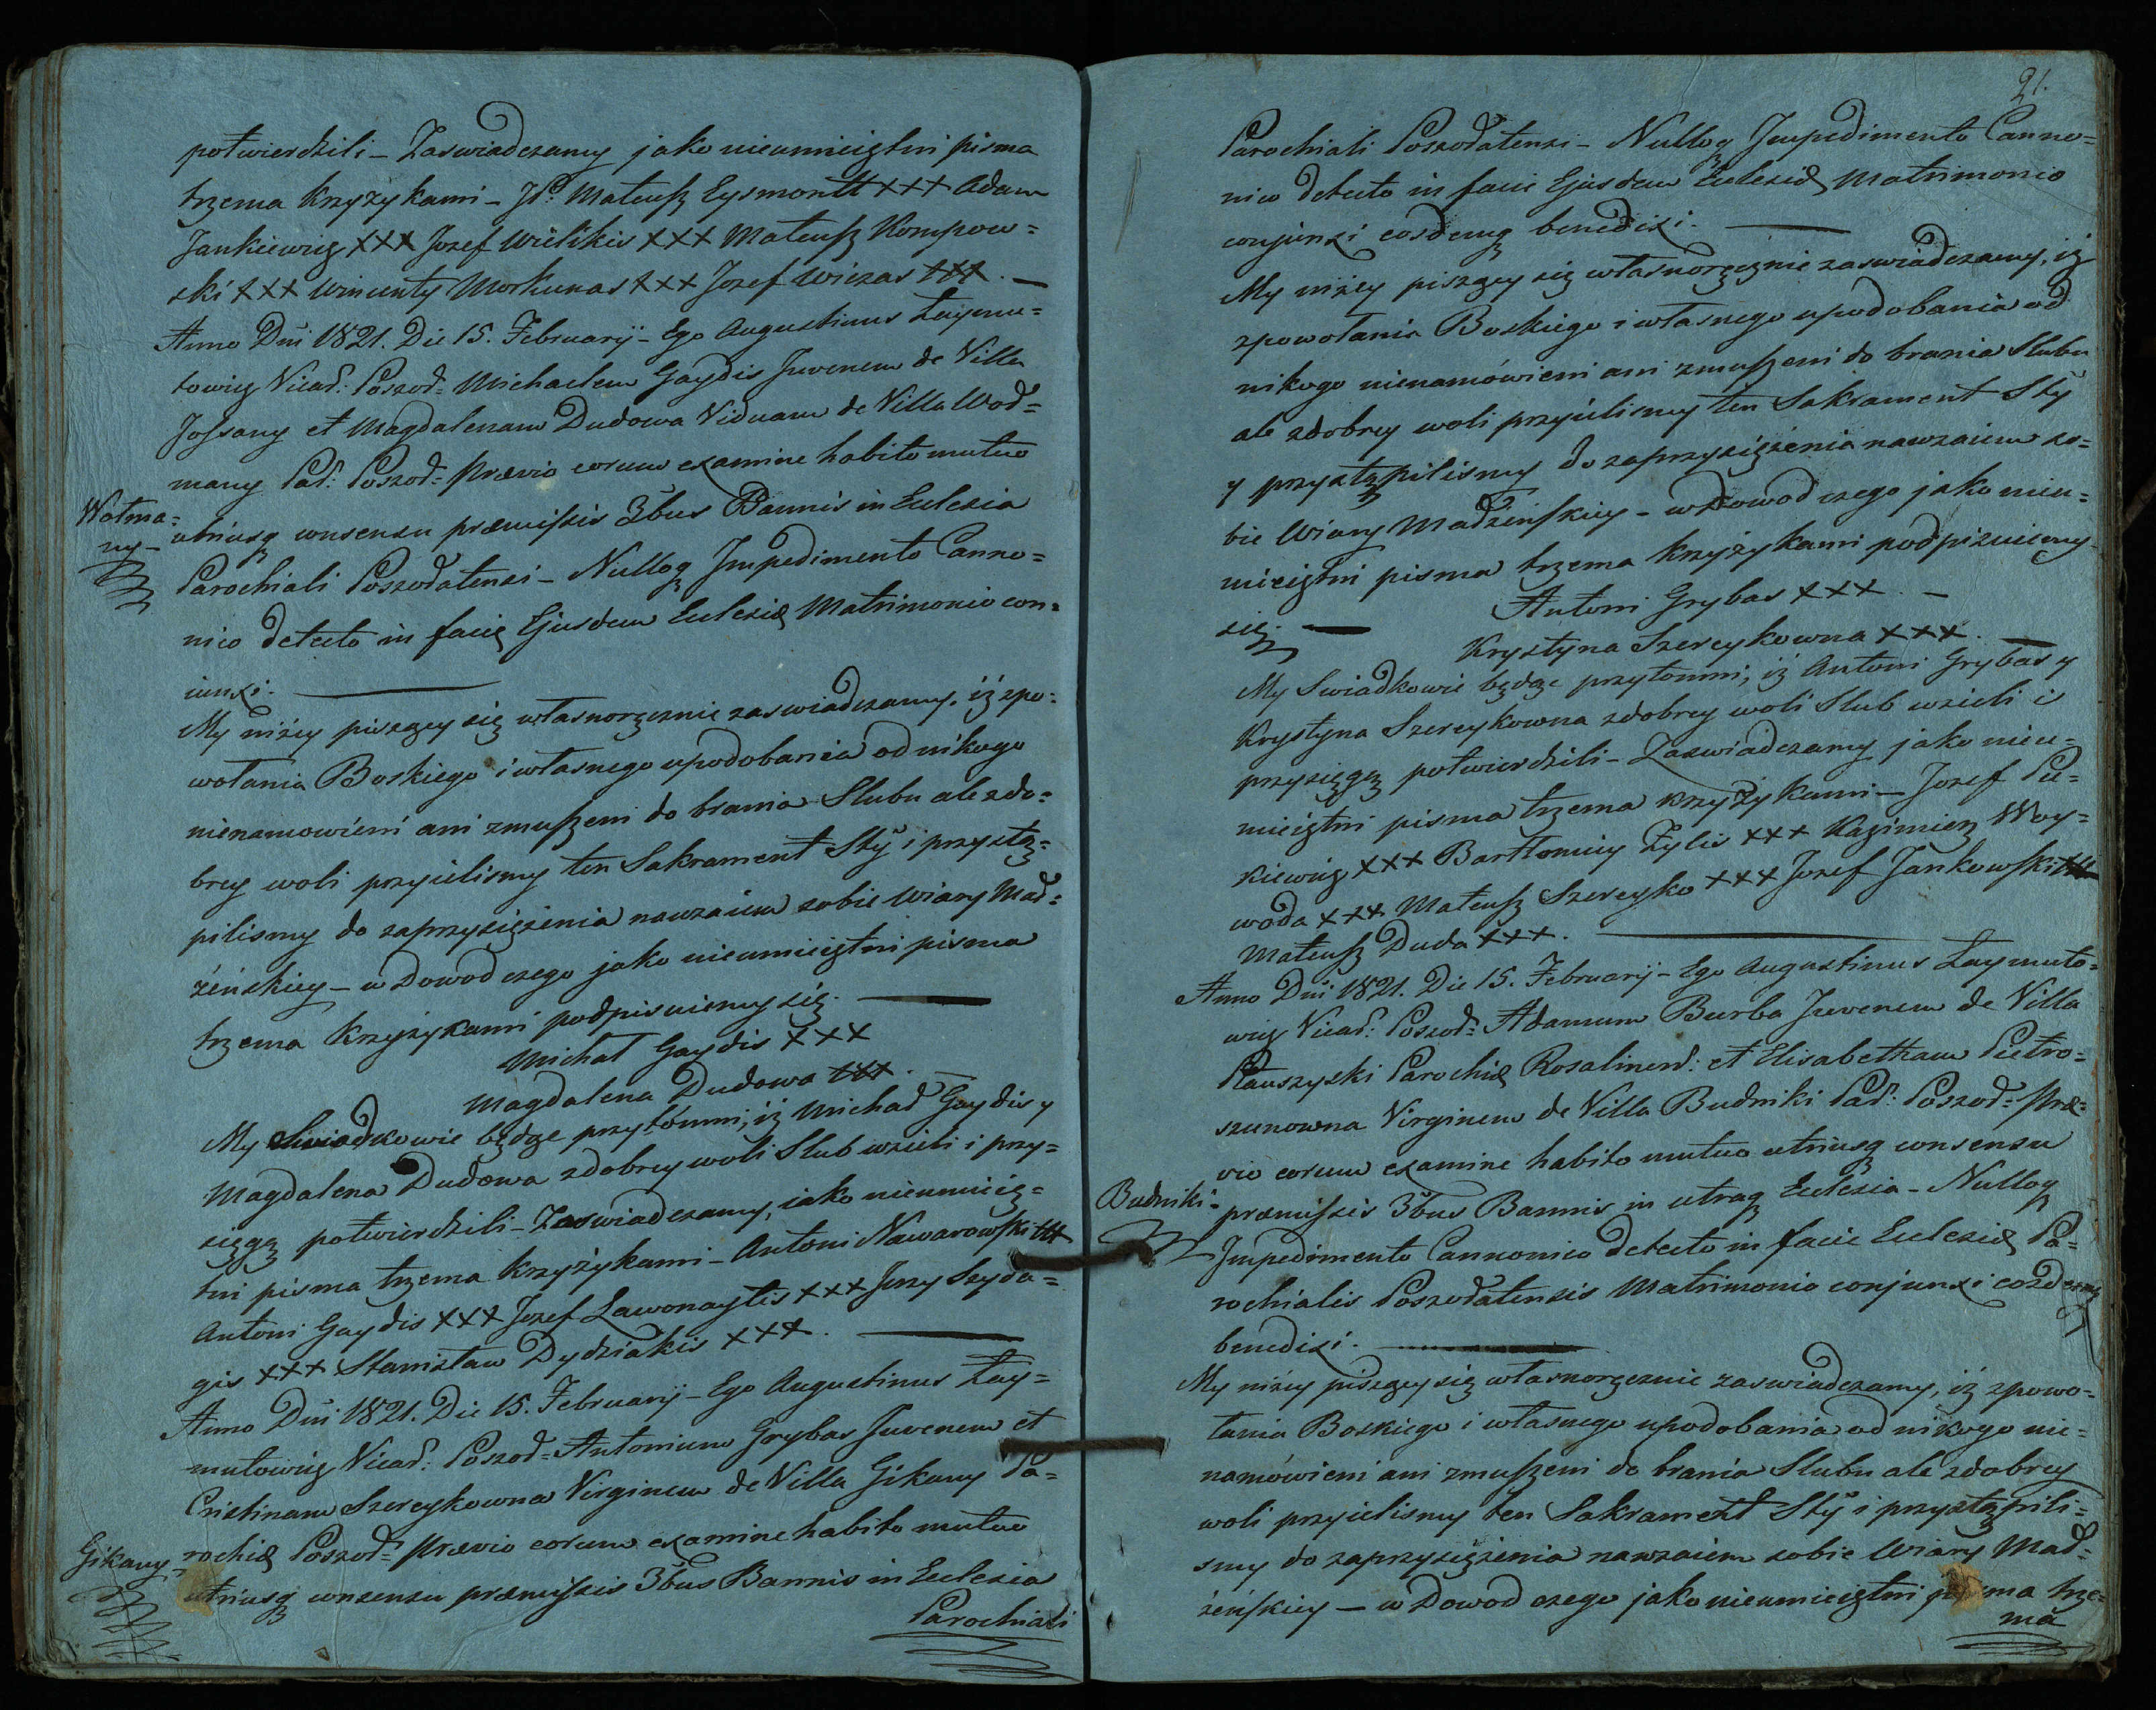 potwierdzili – Zaswiadczamy jako nieumieiętni pisma
trzema krzyżykami – JP. Mateusz Eysmontt +++ Adam
Jankiewicz +++ Jozef Wielikis +++ Mateusz Kompow=
ski +++ Wincenty Morkunas +++ Jozef Wiczas +++. –
Anno Dni 1821. Die 15. Februarij – Ego Augustinus Łaymu=
towicz Vicar: Poszod= Michaelem Gaydis Juvenem de Villa
Jossany et Magdalenam Dudowa Viduam de Villa Wod=
many Par: Poszod= Prævio eorum examine habito mutuo
Wotma=
ny –
utriusq consensu præmissis 3bus Bannis in Eclesia
Parochiali Poszodatensi – Nulloq Impedimento Canno=
nico detecto in facię Ejusdem Eclesiæ Matrimonio con=
iunxi. –
My niżey piszący się własnoręcznie zaswiadczamy, iż zpo=
wołania Boskiego i własnego upodobania od nikogo
nienamowieni ani zmuszeni do brania Slubu ale zdo=
brey woli przyielismy ten Sakrament Sty i przystą=
pilismy do zaprzysiężenia nawzaiem sobie Wiary Mał=
żeńskiey – w Dowod czego jako nieumieiętni pisma
trzema krzyżykami podpisuiemy się. –
Michał Gaydis +++
Magdalena Dudowa +++. –
My Swiadkowie będąc przytomni, iż Michał Gaydis y
Magdalena Dudowa zdobrey woli Slub wzieli i przy=
sięgą potwierdzili – Zaswiadczamy, iako nieumieię=
tni pisma trzema krzyżykami – Antoni Nawarowski +++
Antoni Gaydis +++ Jozef Lawonaytis +++ Jerzy Seyda=
gis +++ Stanisław Dydziakis +++. –
Anno Dni 1821. Die 15. Februarij – Ego Augustinus Łay=
mutowicz Vicar: Poszod= Antonium Grybas Juvenem et
Cristinam Szereykowna Virginem de Villa Gikany Pa=
Gikany –
rochiæ Poszod= Prævio eorum examine habito mutuo
utriusq consensu præmissis 3bus Bannis in Eclesia
Parochiali
21.
Parochiali Poszodatensi – Nulloq Impedimento Canno=
nico detecto in facie Ejusdem Eclesiæ Matrimonio
conjunxi eosdemq benedixi. –
My niżey piszący się własnoręcznie zaswiadczamy, iż
zpowołania Boskiego i własnego upodobania od
nikogo nienamówieni ani zmuszeni do brania Slubu
ale zdobrey woli przyielismy ten Sakrament Sty
y przystąpilismy do zaprzysiężenia nawzaiem so=
bie Wiary Madżeńskiey – w Dowod czego jako nieu=
mieiętni pisma trzema krzyżykami podpisuiemy
się. – Antoni Grybas +++. –
Krystyna Szereykowna +++. –
My Swiadkowie będąc przytomni, iż Antoni Grybas y
Krystyna Szereykowna zdobrey woli Slub wzieli i
przysięgą potwierdzili – Zaswiadczamy jako nieu=
mieiętni pisma trzema krzyżykami – Jozef Pie=
kiewicz +++ Bartłomiey Zylis +++ Kazimierz Woy=
woda +++ Mateusz Szereyko +++ Jozef Jankowski +++
Mateusz Duda +++. –
Anno Dni 1821. Die 15. Februarij – Ego Augustinus Łaymuto=
wicz Vicar: Poszod= Adamum Burba Juvenem de Villa
Plauszyski Parochiæ Rosalinen: et Elisabetham Pietro=
szunowna Virginem de Villa Budniki Par: Poszod= Præ=
vio eorum examine habito mutuo utriusq consensu
Budniki =
præmissis 3bus Bannis in utraq Eclesia – Nulloq
Impedimento Cannonico detecto in facie Eclesiæ Pa=
rochialis Poszodatensis Matrimonio conjunxi eosdemq
benedixi. –
My niżey piszący się własnoręcznie zaswiadczamy, iż zpowo=
łania Boskiego i własnego upodobania od nikogo nie=
namówieni ani zmuszeni do brania Slubu ale zdobrey
woli przyielismy ten Sakrament Sty i przystąpili=
smy do zaprzysiężenia nawzaiem sobie Wiary Mał=
żeńskiey – w Dowod czego jako nieumieiętni pisma trze=
ma